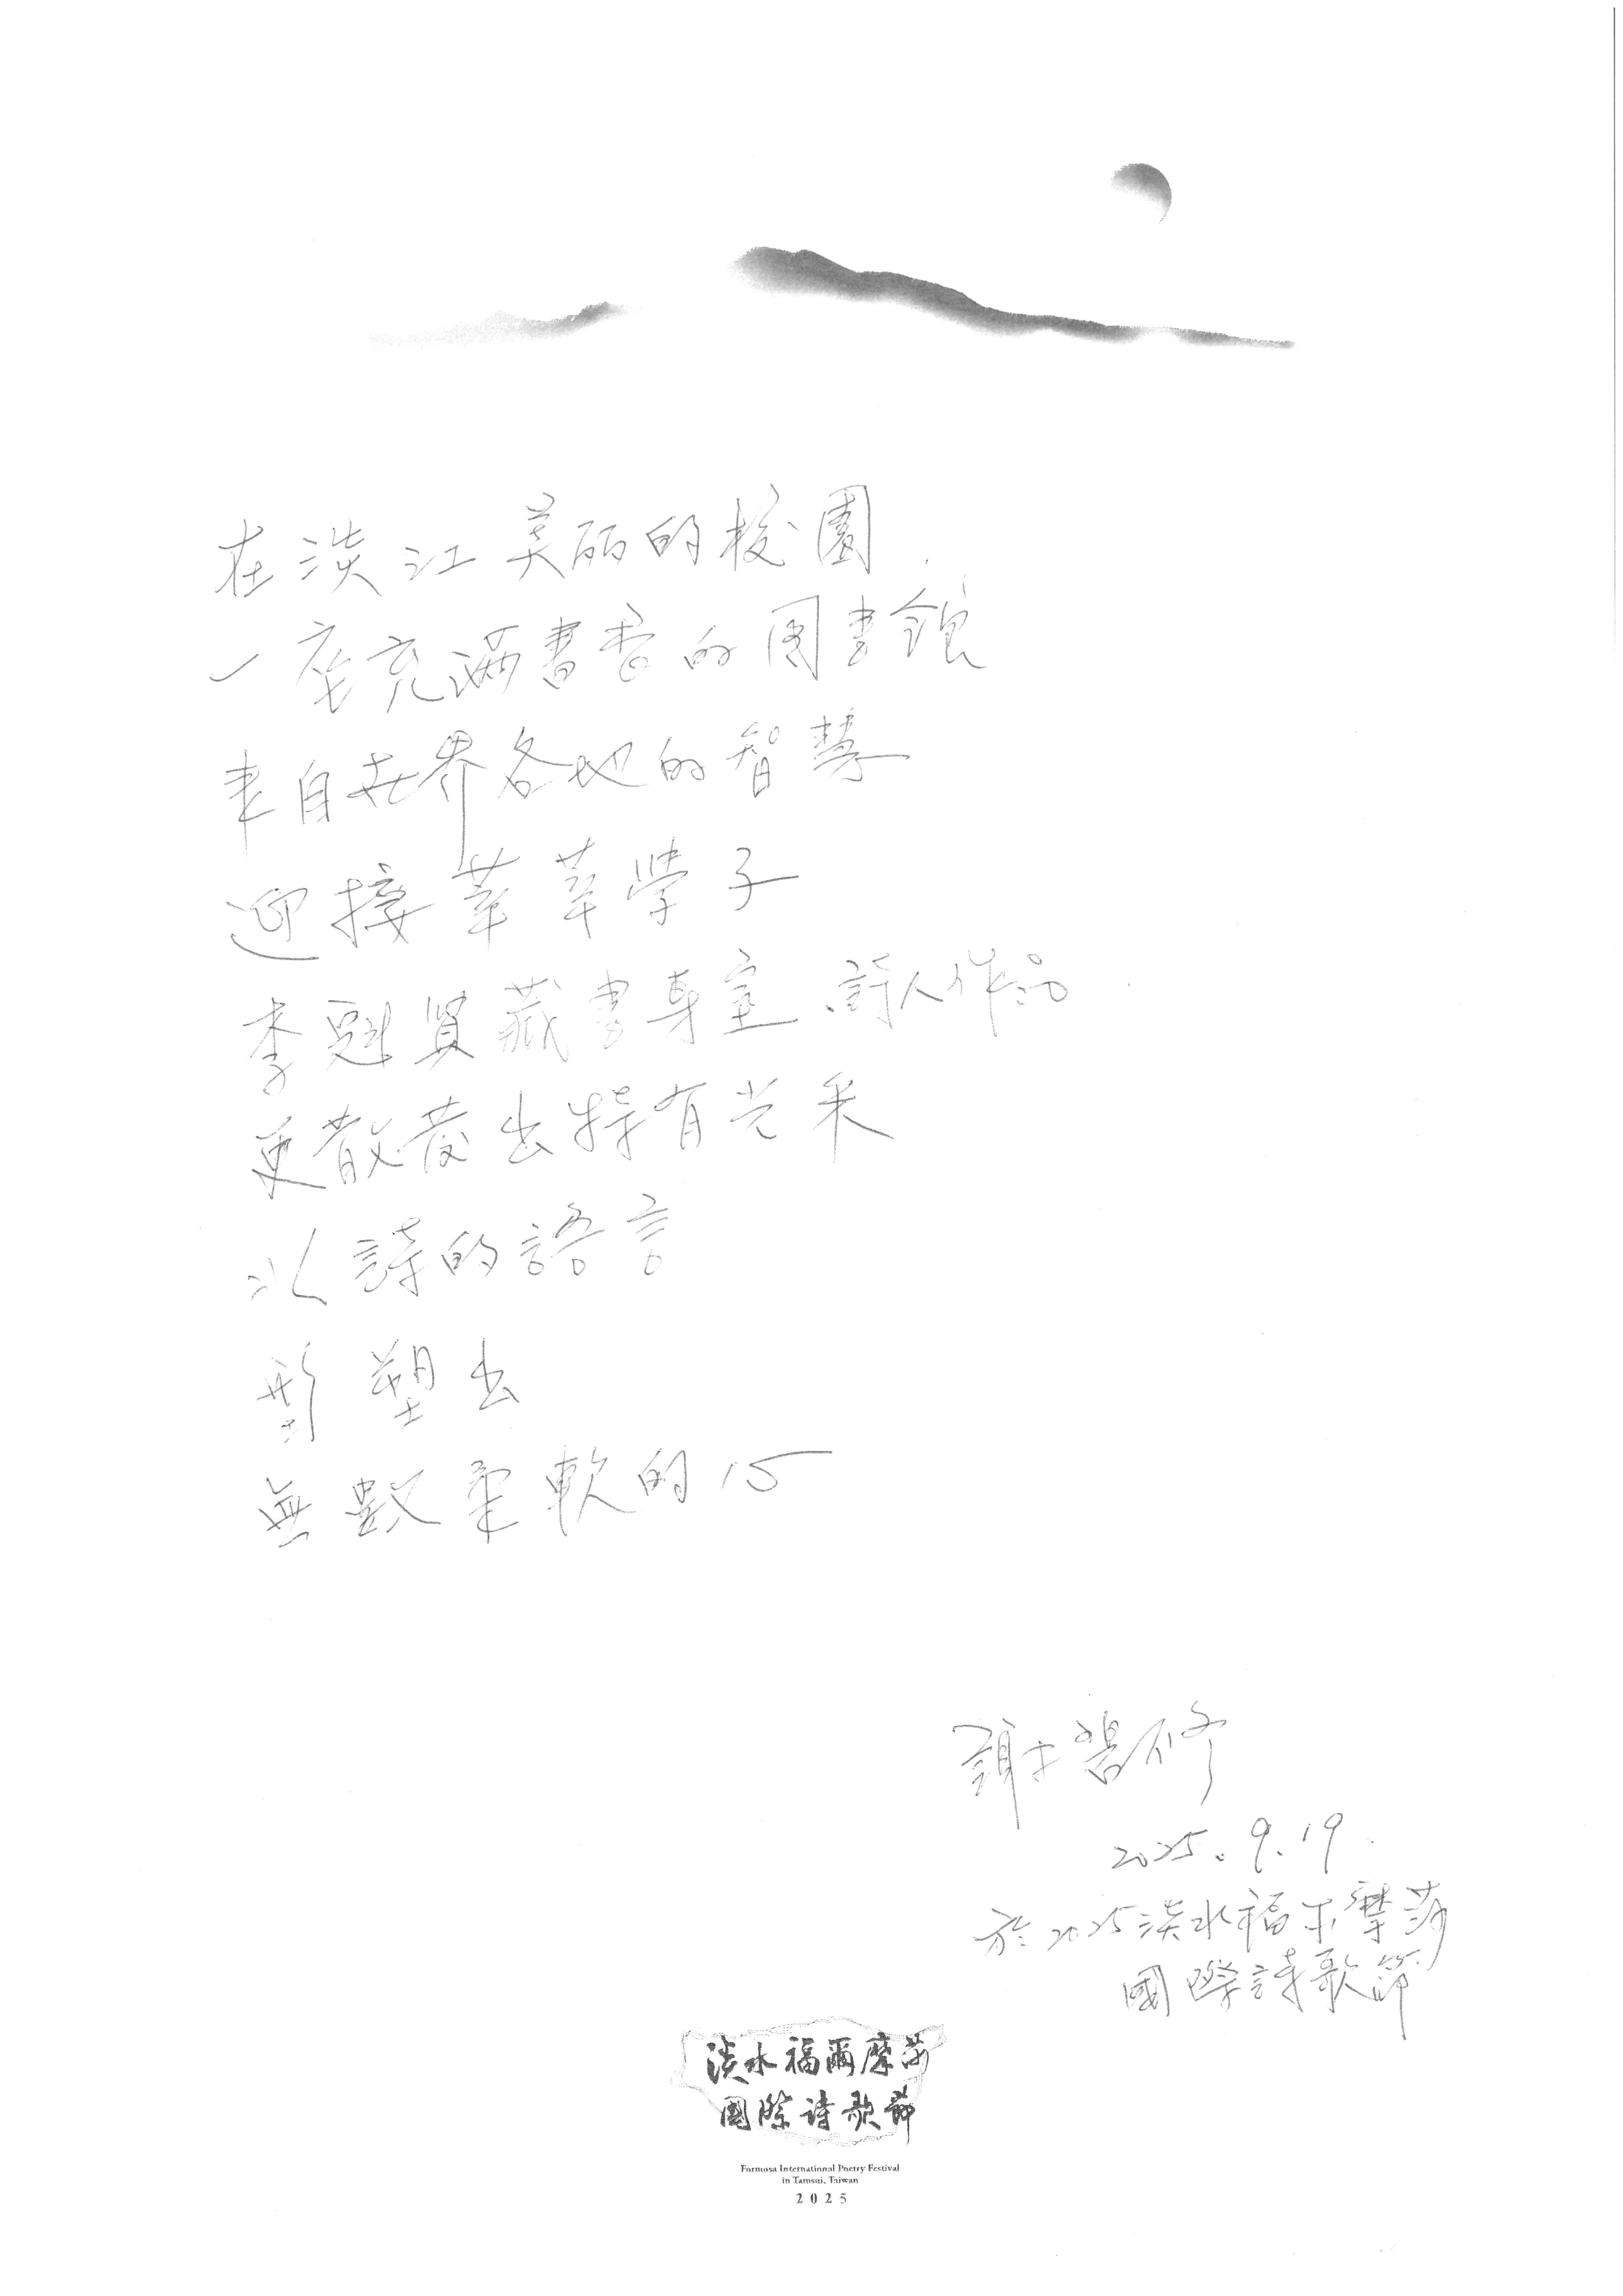 在淡江美丽的校園
一座充滿書香的圖書館
来自世界各地的智慧
迎接莘莘學子
李魁賢藏書專室 詩人作品
更散發出特有光采
以詩的語言
形塑出
無數柔軟的心
謝碧修
2025.9.19
於2025淡水福尔摩莎
國際詩歌節
淡水福爾摩莎
國際詩歌節
Formosa International Poetry Festival
in Tamsui, Taiwan
2025